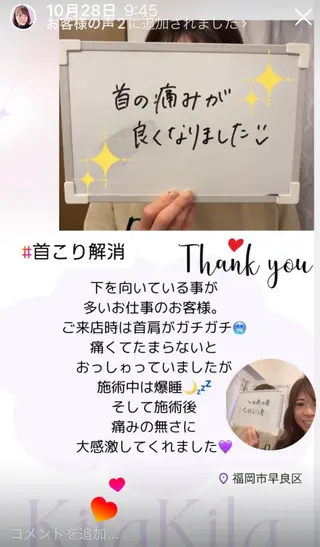 10月28日 9:45
お客様の声2に追加されました
首の痛みが
良くなりました
#首こり解消
Thank you
下を向いている事が
多いお仕事のお客様。
ご来店時は首肩がガチガチ🥶
痛くてたまらないと
おっしゃっていましたが
施術中は爆睡🌙💤
そして施術後
痛みの無さに
大感激してくれました💜
福岡市早良区
KiraKila
コメントを追加...